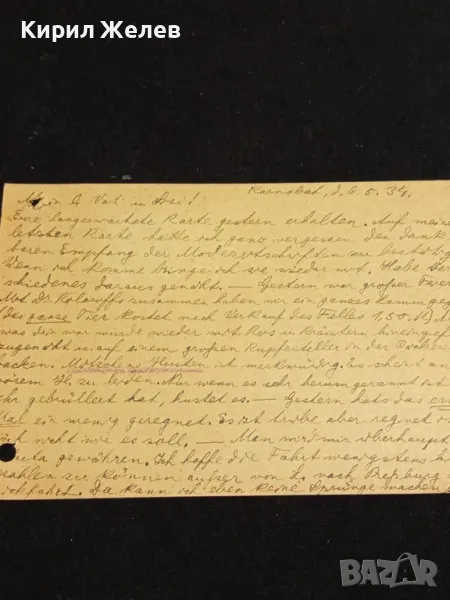 Кирил Желев
Karnobat, d. 6.5.34.
Mein l. Vati u.
Eure langerwartete Karte gestern erhalten. Auf meine
letzten Karte hatte ich ganz vergessen den dank
baren Empfang der Modezeitschriften zu bestätig
Wenn ich komme bringe ich sie wieder mit. Habe
schiedenes daraus genäht. — Gestern war großer
Mit Dr. zusammen haben wir ein ganzes Lamm
(das ganze Tier kostet nach Verkauf des Felles 1,50 M)
was drin war wurde wieder mit Reis u. Kräutern hineingef
zugenäht u. auf einem großen Kupferteller in der
backen. Husten ist merkwürdig. Es scheint an
zu leiden. Nur wenn es sehr herumgerannt ist
gebrüllert hat, hustet es. — Gestern hats das
Mal ein wenig geregnet. Es ist trübe aber regnet
nicht wie es soll. — Man wird mir überhaupt
gewähren. Ich hoffe die Fahrt wenigstens
zahlen zu können außer von L. nach Preßburg
Da kann ich eben keine Sprünge machen
BAZAR